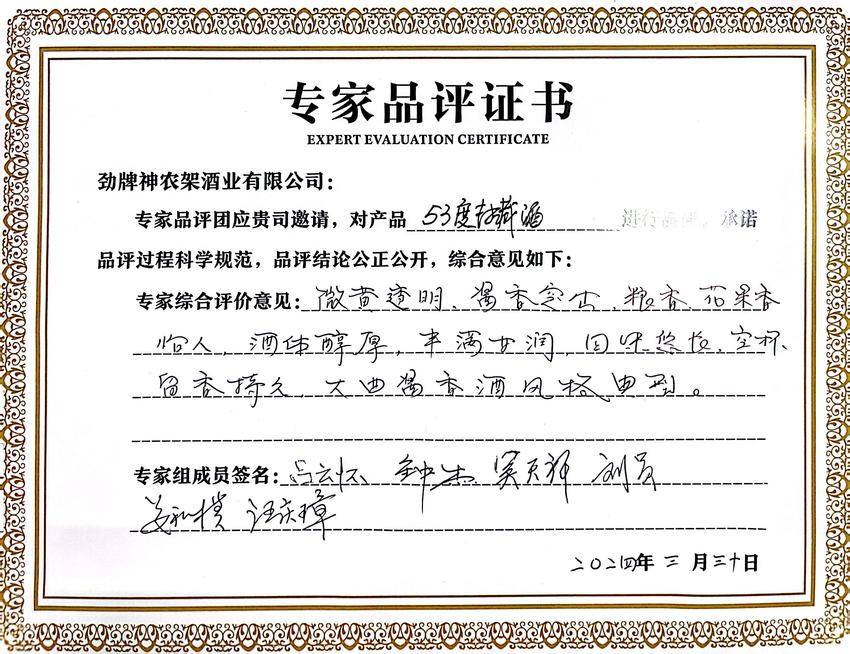 专家品评证书
EXPERT EVALUATION CERTIFICATE
劲牌神农架酒业有限公司：
专家品评团应贵司邀请，对产品 53度封藏酒 进行品评，承诺
品评过程科学规范，品评结论公正公开，综合意见如下：
专家综合评价意见：微黄透明、酱香突出、粮香、花果香
怡人，酒体醇厚，丰满甘润，回味悠长，空杯
留香持久，大曲酱香酒风格典型。
专家组成员签名：吕云怀 钟杰
汪庆璋
二〇二四年三月三十日